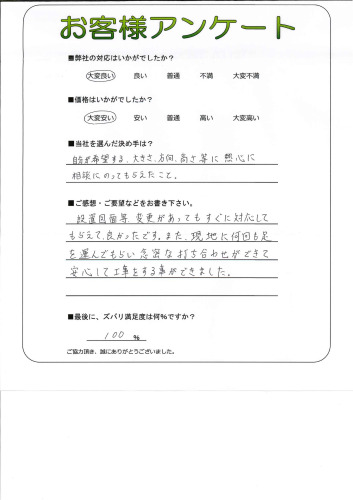 お客様アンケート
■弊社の対応はいかがでしたか？
大変良い 良い 普通 不満 大変不満
■価格はいかがでしたか？
大変安い 安い 普通 高い 大変高い
■当社を選んだ決め手は？
自分が希望する、大きさ、方向、高さ等に熱心に
相談にのってもらえたこと。
■ご感想・ご要望などをお書き下さい。
設置図面等、変更があってもすぐに対応して
もらえて、良かったです。また、現地に何回も足
を運んでもらい念密な打ち合わせができて
安心して工事をする事ができました。
■最後に、ズバリ満足度は何％ですか？
100 %
ご協力頂き、誠にありがとうございました。